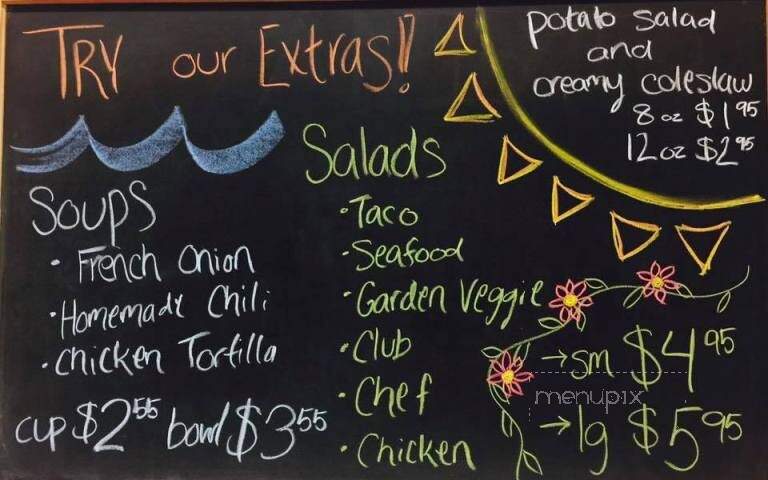 TRY our Extras!
potato salad
and
creamy coleslaw
8 oz $1.95
12 oz $2.95
Soups
• French Onion
• Homemade Chili
• Chicken Tortilla
cup $2.55 bowl $3.55
Salads
• Taco
• Seafood
• Garden Veggie
• Club
• Chef
• Chicken
→ sm $4.95
→ lg $5.95
menupix